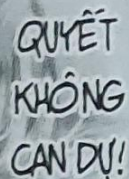 QUYẾT
KHÔNG
CAN DỰ!